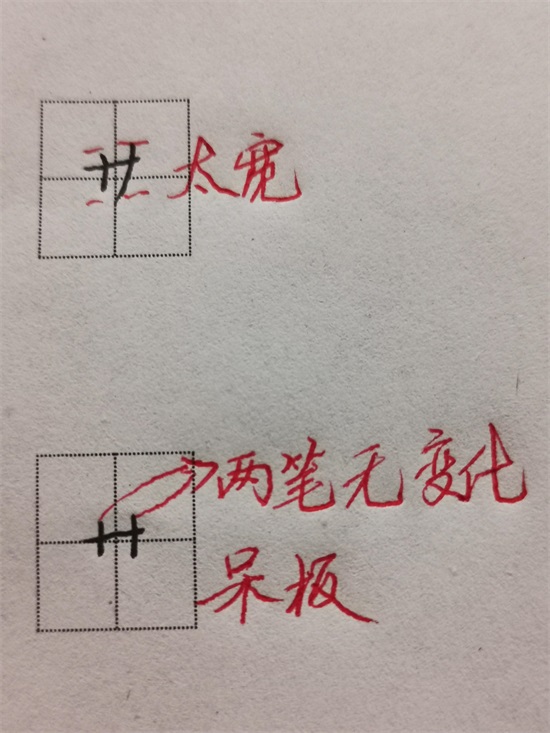 艹太宽
艹两笔无变化
呆板